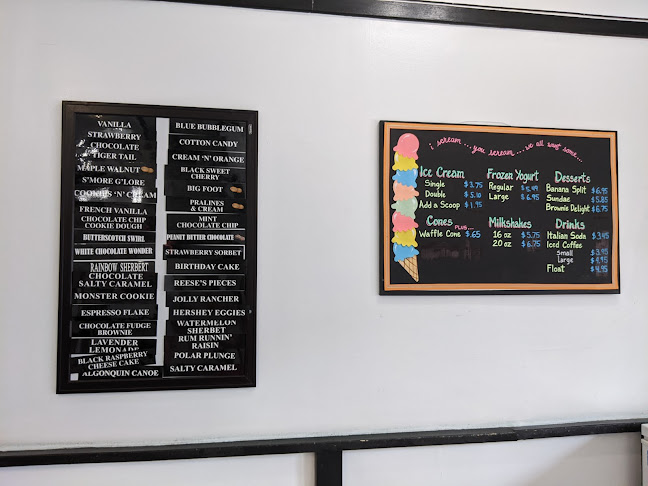 VANILLA
STRAWBERRY
CHOCOLATE
TIGER TAIL
MAPLE WALNUT
S'MORE G'LORE
COOKIES 'N' CREAM
FRENCH VANILLA
CHOCOLATE CHIP
COOKIE DOUGH
BUTTERSCOTCH SWIRL
WHITE CHOCOLATE WONDER
RAINBOW SHERBERT
CHOCOLATE
SALTY CARAMEL
MONSTER COOKIE
ESPRESSO FLAKE
CHOCOLATE FUDGE
BROWNIE
LAVENDER
LEMONADE
BLACK RASPBERRY
CHEESE CAKE
ALGONQUIN CANOE
BLUE BUBBLEGUM
COTTON CANDY
CREAM 'N' ORANGE
BLACK SWEET
CHERRY
BIG FOOT
PRALINES
& CREAM
MINT
CHOCOLATE CHIP
PEANUT BUTTER CHOCOLATE
STRAWBERRY SORBET
BIRTHDAY CAKE
REESE'S PIECES
JOLLY RANCHER
HERSHEY EGGIES
WATERMELON
SHERBET
RUM RUNNIN'
RAISIN
POLAR PLUNGE
SALTY CARAMEL
i scream...you scream...we all want some...
Ice Cream
Single $3.75
Double $5.10
Add a Scoop $1.95
Cones PLUS...
Waffle Cone $.65
Frozen Yogurt
Regular $5.49
Large $6.95
Milkshakes
16 oz $5.75
20 oz $6.75
Desserts
Banana Split $6.95
Sundae $5.85
Brownie Delight $6.75
Drinks
Italian Soda $3.45
Iced Coffee
Small $3.95
Large $4.95
Float $4.95